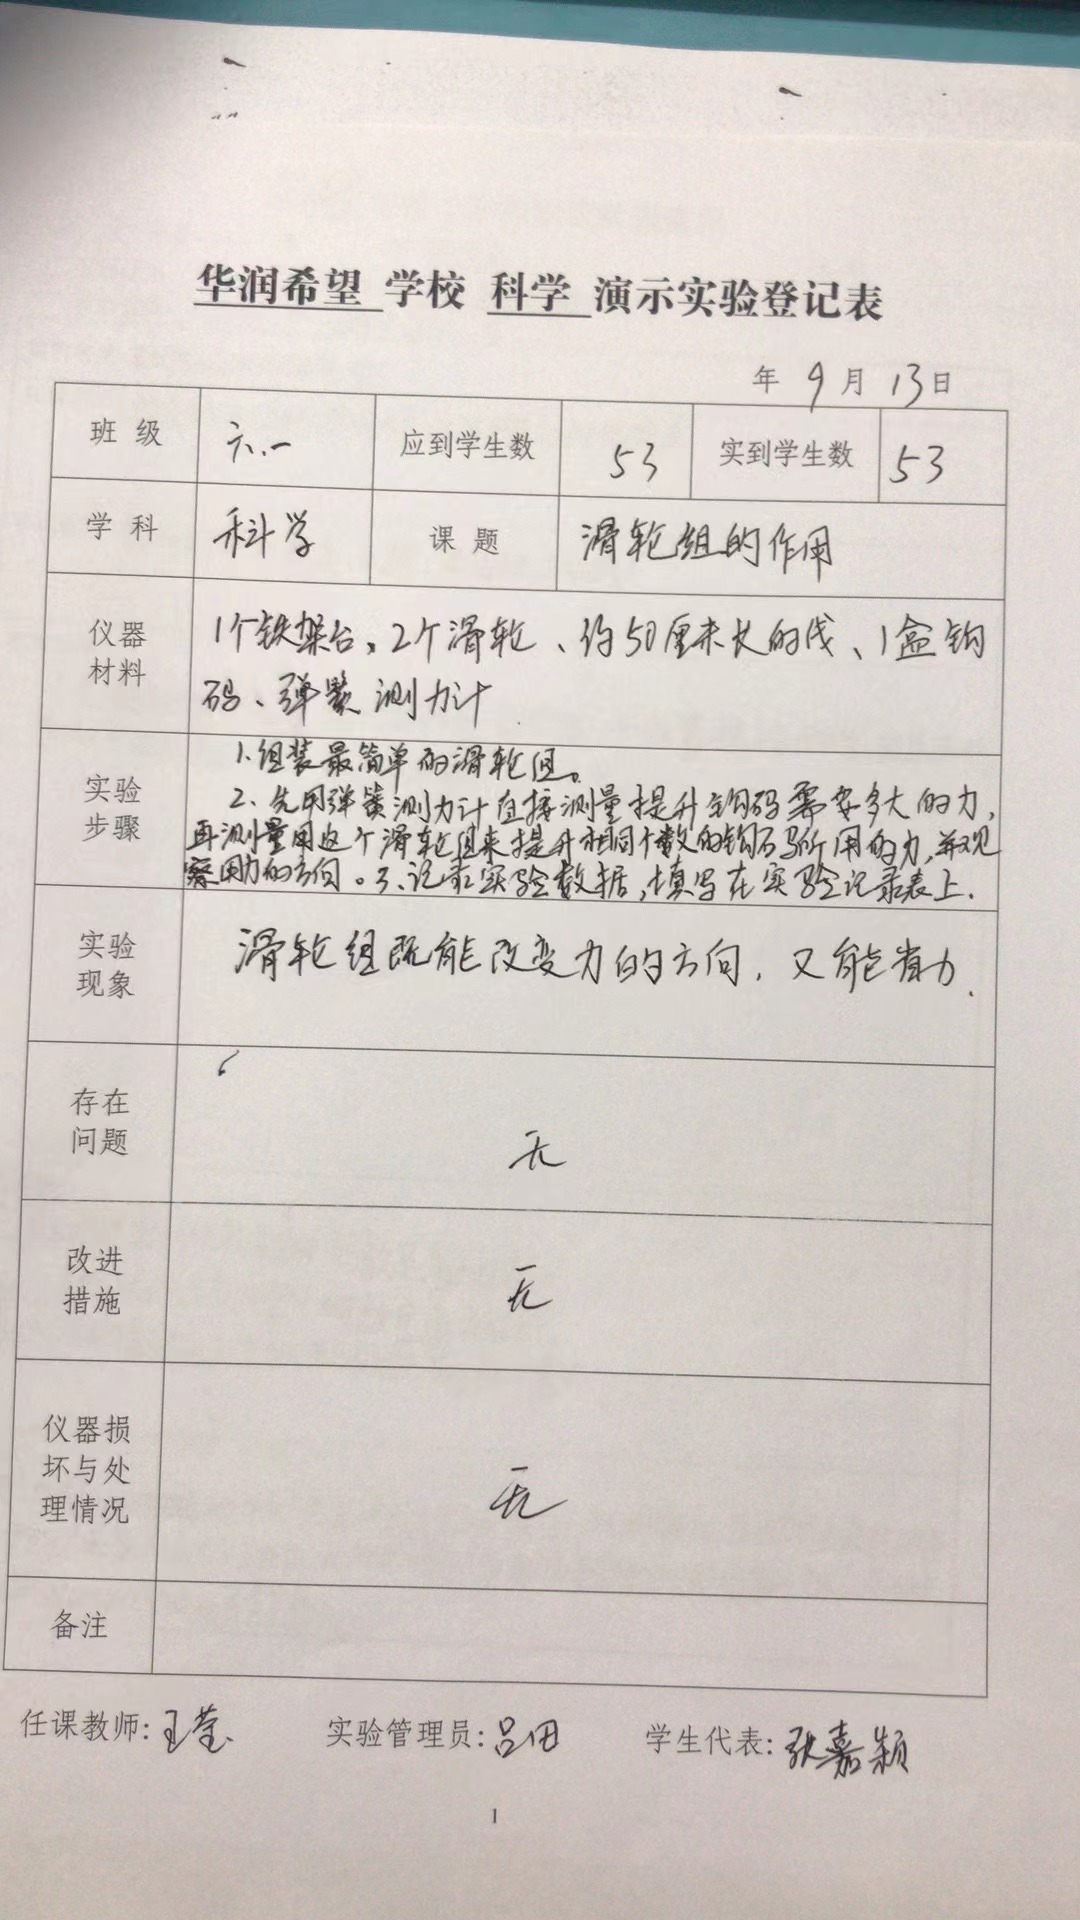 华润希望 学校 科学 演示实验登记表
年 9 月 13 日
班 级 六.一 应到学生数 53 实到学生数 53
学 科 科学 课 题 滑轮组的作用
仪器 1个铁架台、2个滑轮、约50厘米长的线、1盒钩
材料 码、弹簧测力计
1.组装最简单的滑轮组。
实验 2、先用弹簧测力计直接测量提升钩码需要多大的力,
步骤 再测量用这个滑轮组来提升相同个数的钩码所用的力,并观
察用力的方向。3、记录实验数据,填写在实验记录表上.
实验
现象 滑轮组既能改变力的方向,又能省力.
存在
问题 无
改进
措施 无
仪器损
坏与处 无
理情况
备注
任课教师: 王莹 实验管理员: 吕田 学生代表: 耿嘉颖
1